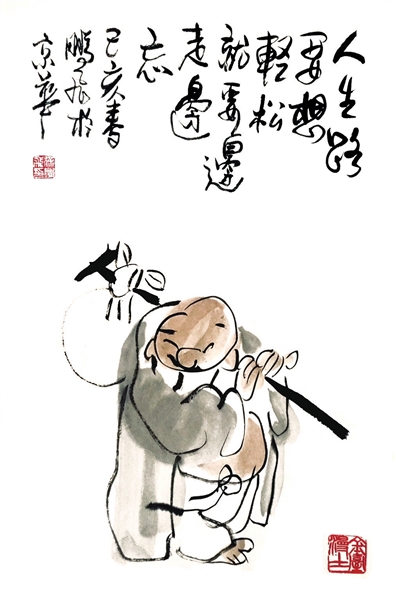 人生路
要想
輕松
就要邊
走邊
忘
己亥春
鵬飛於
京華